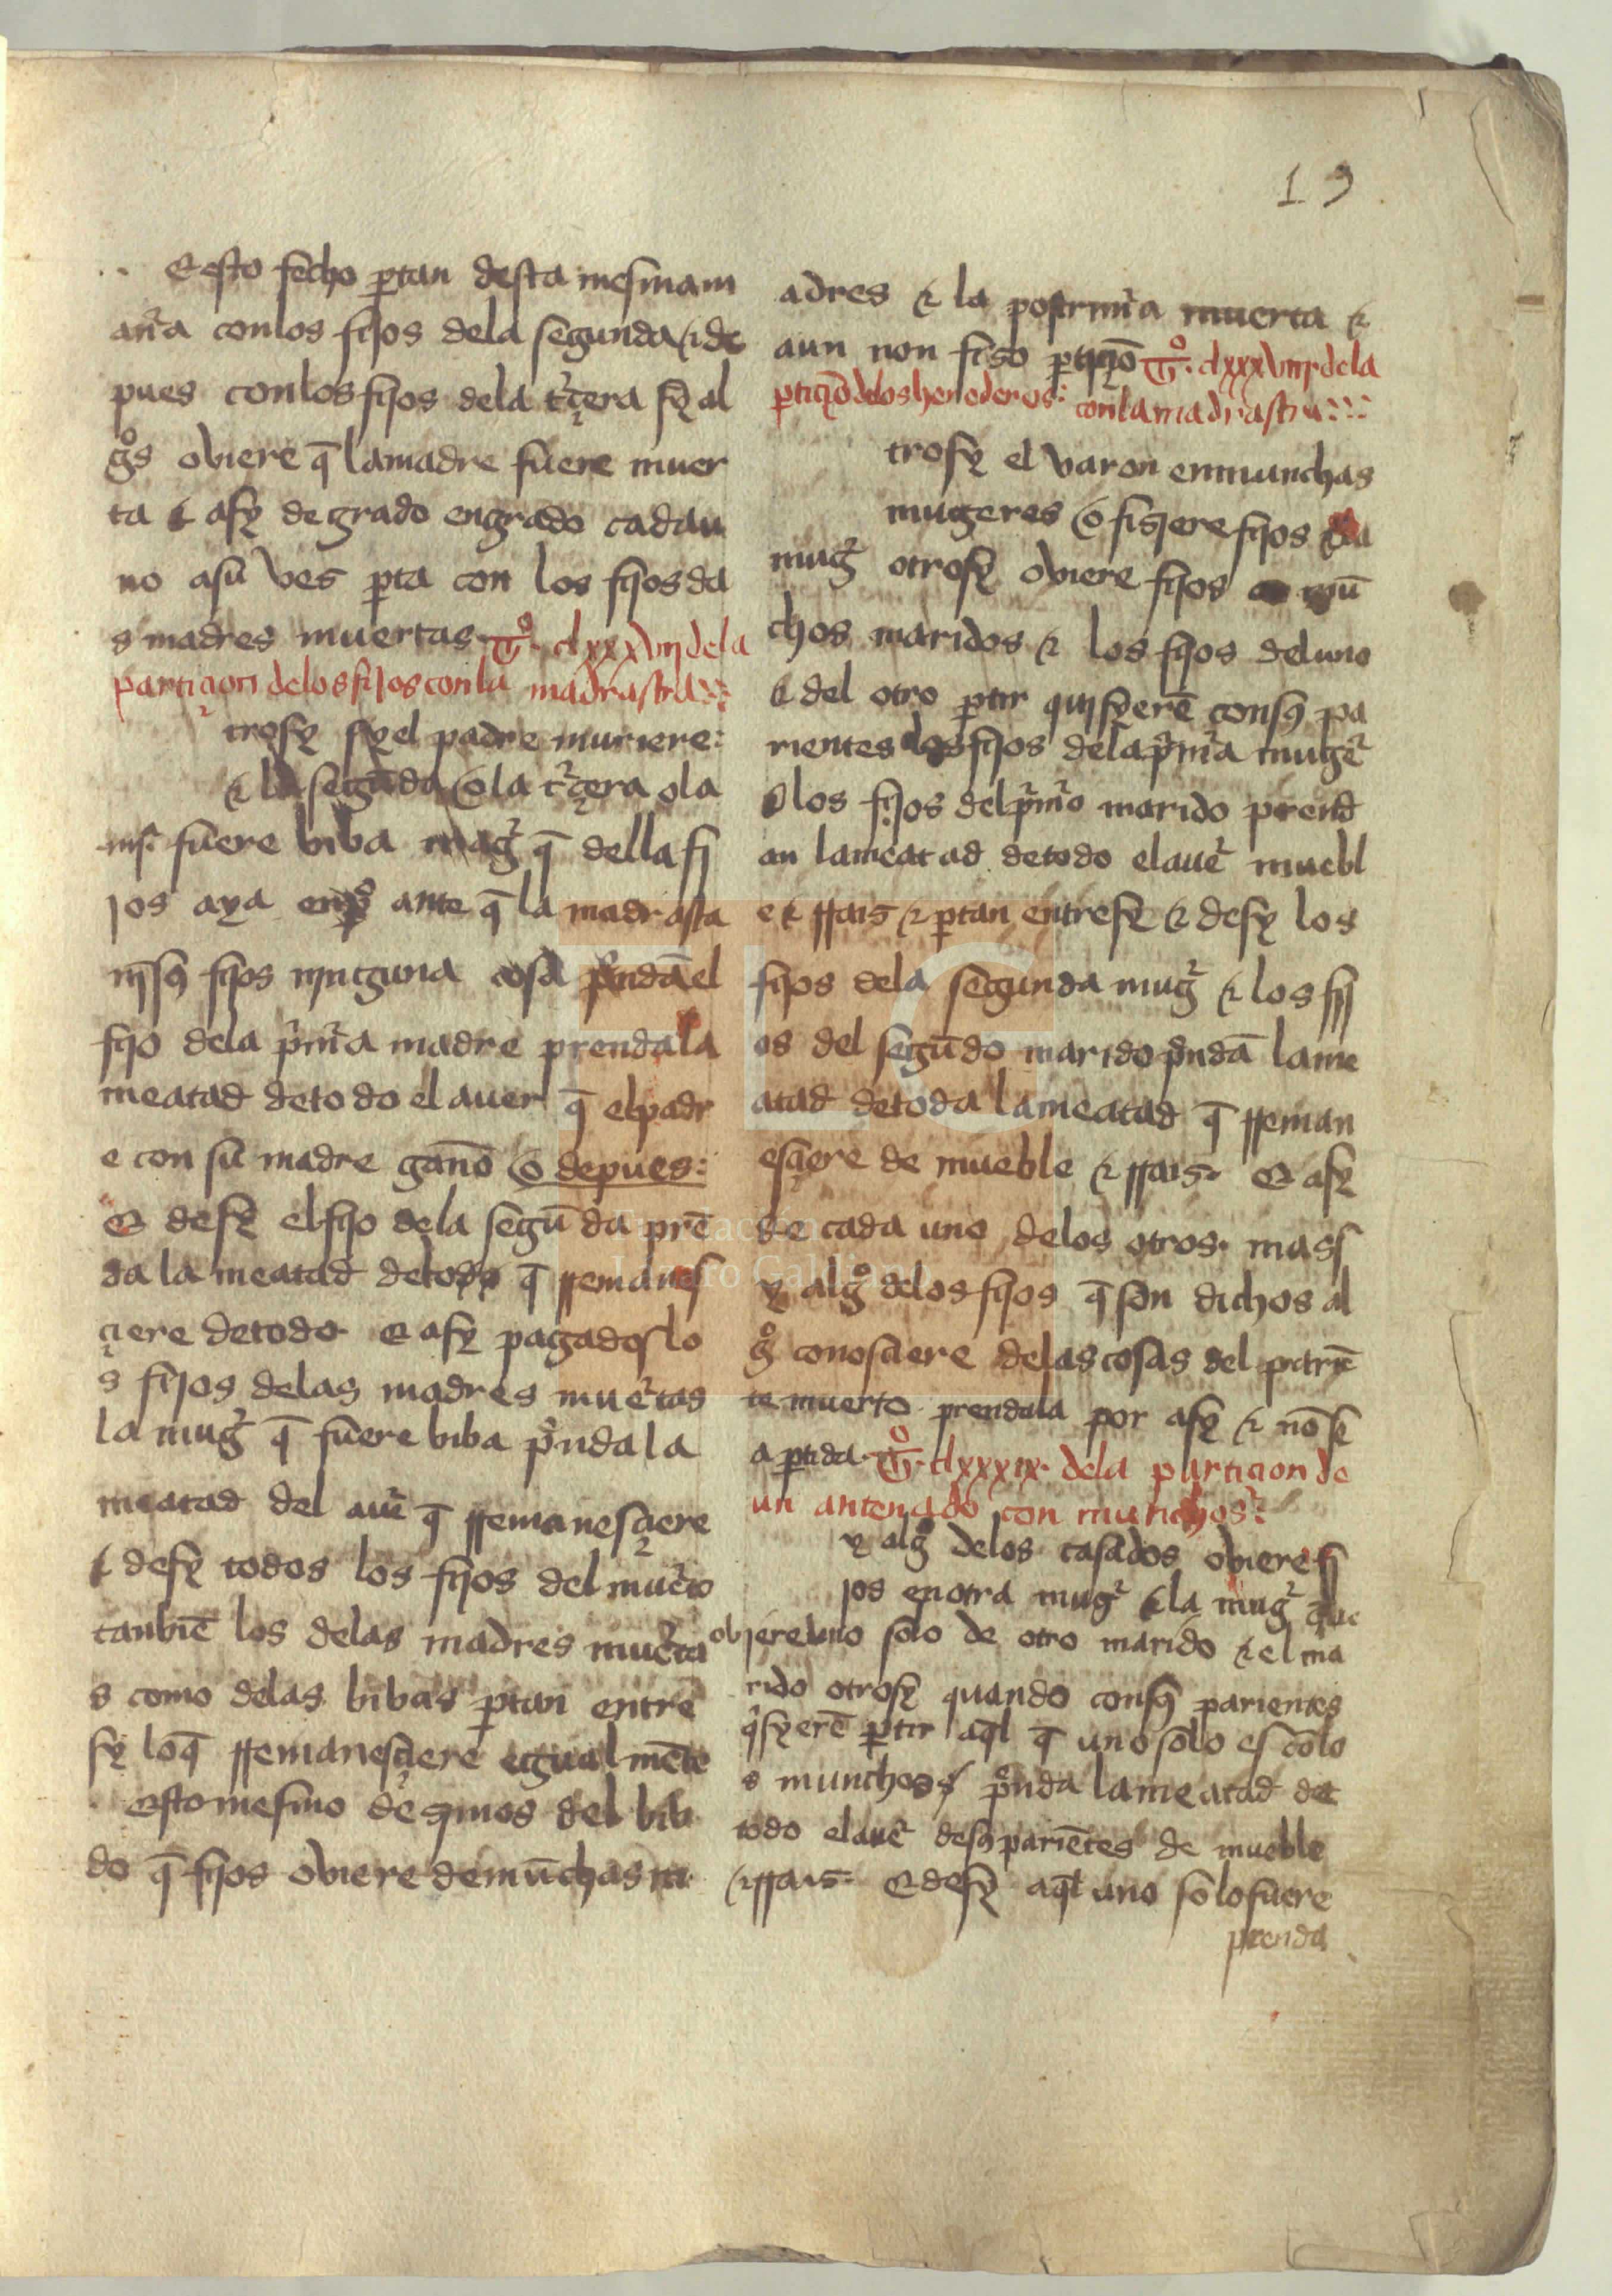 19
E esto fecho ꝑtan desta mesma m
anr̃a con los fijos dela segunda ⁊ de
pues con los fijos dela tr̃çera sy al
gº̃s obiere q̃ la madre fuere muer
ta ⁊ asy de grado en grado cada u
no a su ves ꝑta con los fijos da
s madres muertas. Tº. clxxxvij dela
partiçion delos fijos con la madrastra
trosy sy el padre muriere:
⁊ la segũda o la tr̃çera o la
fuere biba mag̃r q̃ della fi
jos aya enpº ante q̃ la madrasta
nj sus fijos njnguna cosa pr̃ndã el
fijo dela pr̃mr̃a madre prenda la
meatad de todo el auer q̃ el padr
e con su madre ganõ o depues:
E desy el fijo dela segũda prẽ
da la meatad de todo q̃ rremanes
çiere de todo. E asy pagados lo
s fijos delas madres muertas
la mug̃r q̃ fuere biba pr̃nda la
meatad del auẽr q̃ rremanesçiere
⁊ desy todos los fijos del muẽrto
tanbiẽ los delas madres muẽrta
s como delas bibas ꝑtan entre
sy lo q̃ rremanesçiere egual mẽte
Esto mesmo desimos del bib
do q̃ fijos obiere de mũchas m
adres ⁊ la postrimr̃a muerta ⁊
aun non fiso ꝑtiçiõ Tº. clxxxviij dela
ꝑtiçiõ delos herederos: con la madrastra
trosy el varon en munchas
mugeres o fisiere fijos o la
mug̃r otrosy obiere fijos mũ
chos maridos ⁊ los fijos del uno
⁊ del otro ꝑtir quisyerẽ con sus pa
rientes los fijos dela pr̃mr̃a mugẽr
o los fijos del pr̃mr̃o marido prend
an la meatad de todo el auẽr muebl
e ⁊ rrais ⁊ ꝑtan entre sy ⁊ desy los
fijos dela segunda mug̃r ⁊ los fij
os del segũdo marido pr̃ndã la me
atad de toda la meatad q̃ rreman
esçiere de mueble ⁊ rrais. E asy
de cada uno delos otros. mas s
y algº̃ delos fijos q̃ son dichos al
gº̃ conosçiere delas cosas del pariẽ
te muerto prendala por asy ⁊ nõ se
a ꝑtida. Tº. clxxxix. dela partiçion de
un antenado con munchos:
y algº̃ delos casados obiere fi
jos en otra mug̃r ⁊ la mug̃r que
obiere uno solo de otro marido ⁊ el ma
rido otrosy quando con sus parientes
q̃syerẽ ꝑtir aq̃l q̃ uno solo es cõ lo
s munchos pr̃nda la meatad de
todo el auẽr de sus pariẽtes de mueble
⁊ rrais. E desy aq̃l uno solo fuere
prenda